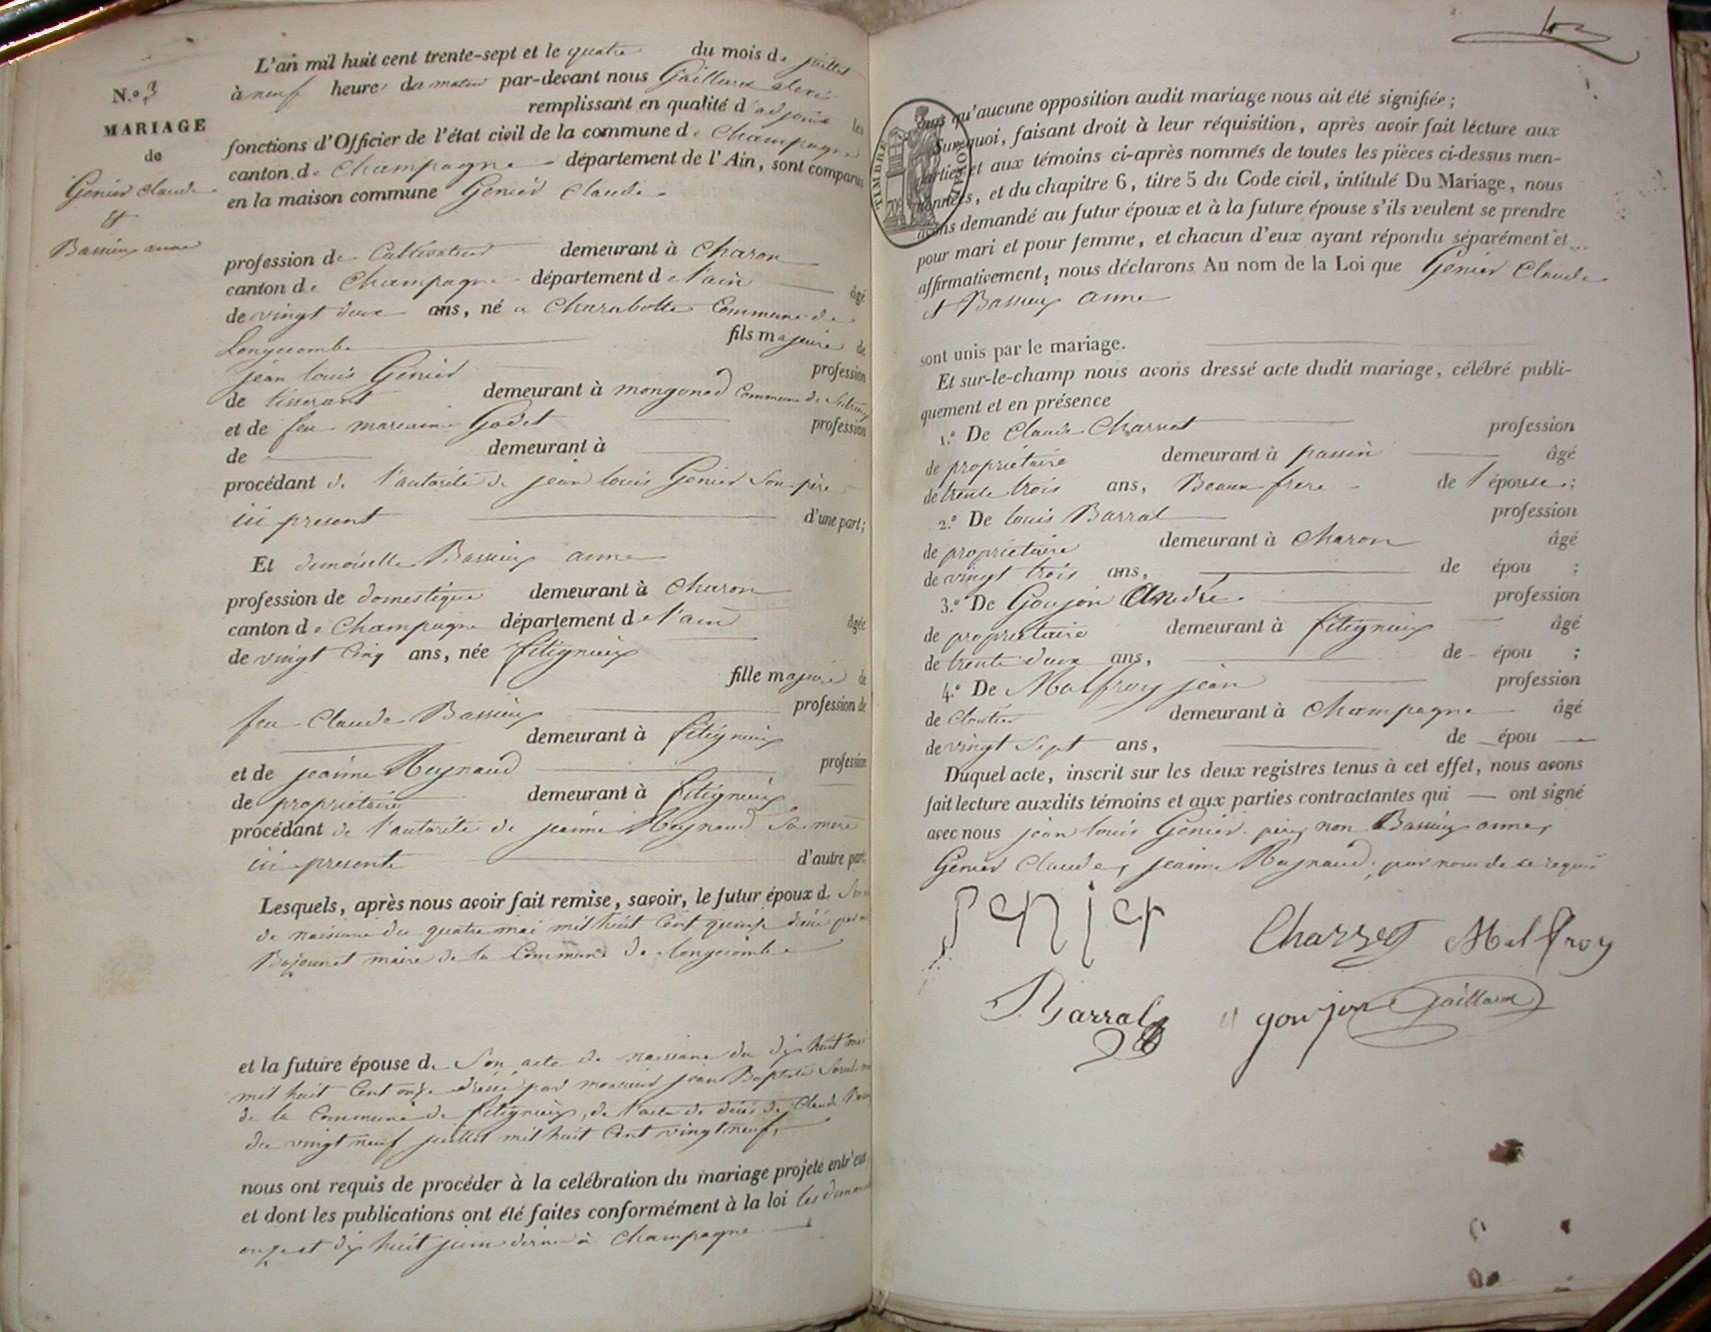 N.º 3
MARIAGE
de
Genier Claude
&
Bassieux anne
L'an mil huit cent trente-sept et le quatre du mois de juillet
à neuf heure du matin par-devant nous Gaillard
remplissant en qualité d'adjoint les
fonctions d'Officier de l'état civil de la commune de Champagne
canton de Champagne département de l'Ain, sont comparus
en la maison commune Genier Claude
profession de Cultivateur demeurant à Charon
canton de Champagne département de l'ain âgé
de vingt deux ans, né a Charabotte Commune de
Longecombe fils majeure de
jean louis Genier profession
de tisserant demeurant à mongonod Commune de
et de feu Godet profession
de demeurant à
procédant de l'autorité de jean louis Genier Son père
ici present d'une part;
Et demoiselle Bassieux anne
profession de domestique demeurant à Charon
canton de Champagne département de l'ain âgée
de vingt Cinq ans, née fitignieux
fille majeure de
feu Claude Bassieux profession de
demeurant à fitignieux
et de jeanne Reynaud profession
de propriétaire demeurant à fitignieux
procédant de l'autorité de jeanne Reynaud Sa mere
ici presente d'autre part.
Lesquels, après nous avoir fait remise, savoir, le futur époux de Son
de naissance du quatre mai mil huit Cent quinze
maire de la Commune de longecombe
et la future épouse de Son acte de naissance du dix huit mai
mil huit Cent onze dressé par monsieur jean Baptiste
de la Commune de fitignieux, de l'acte de décès de Claude
du vingt neuf juillet mil huit Cent vingt neuf,
nous ont requis de procéder à la celébration du mariage projeté entr'eux
et dont les publications ont été faites conformément à la loi les
onze et dix huit juin dernier à Champagne
TIMBRE
ROYAL
qu'aucune opposition audit mariage nous ait été signifiée;
Surquoi, faisant droit à leur réquisition, après avoir fait lecture aux
parties et aux témoins ci-après nommés de toutes les pièces ci-dessus men-
tionnées, et du chapitre 6, titre 5 du Code civil, intitulé Du Mariage, nous
avons demandé au futur époux et à la future épouse s'ils veulent se prendre
pour mari et pour femme, et chacun d'eux ayant répondu séparément et
affirmativement, nous déclarons Au nom de la Loi que Genier Claude
et Bassieux anne
sont unis par le mariage.
Et sur-le-champ nous avons dressé acte dudit mariage, célébré publi-
quement et en présence
1.º De Claude Charvet profession
de propriétaire demeurant à passin âgé
de trente trois ans, Beaux frere de l'épouse;
2.º De louis Barral profession
de propriétaire demeurant à Charon âgé
de vingt trois ans, de épou ;
3.º De Goujon André profession
de propriétaire demeurant à fitignieux âgé
de trente deux ans, de épou ;
4.º De Malfroy jean profession
de Cloutier demeurant à Champagne âgé
de vingt Sept ans, de épou
Duquel acte, inscrit sur les deux registres tenus à cet effet, nous avons
fait lecture auxdits témoins et aux parties contractantes qui ont signé
avec nous jean louis Genier père, non Bassieux anne,
Genier Claude, jeanne Reynaud, pour de ce requis
genier
Charvet Malfroy
Barral goujon Gaillard